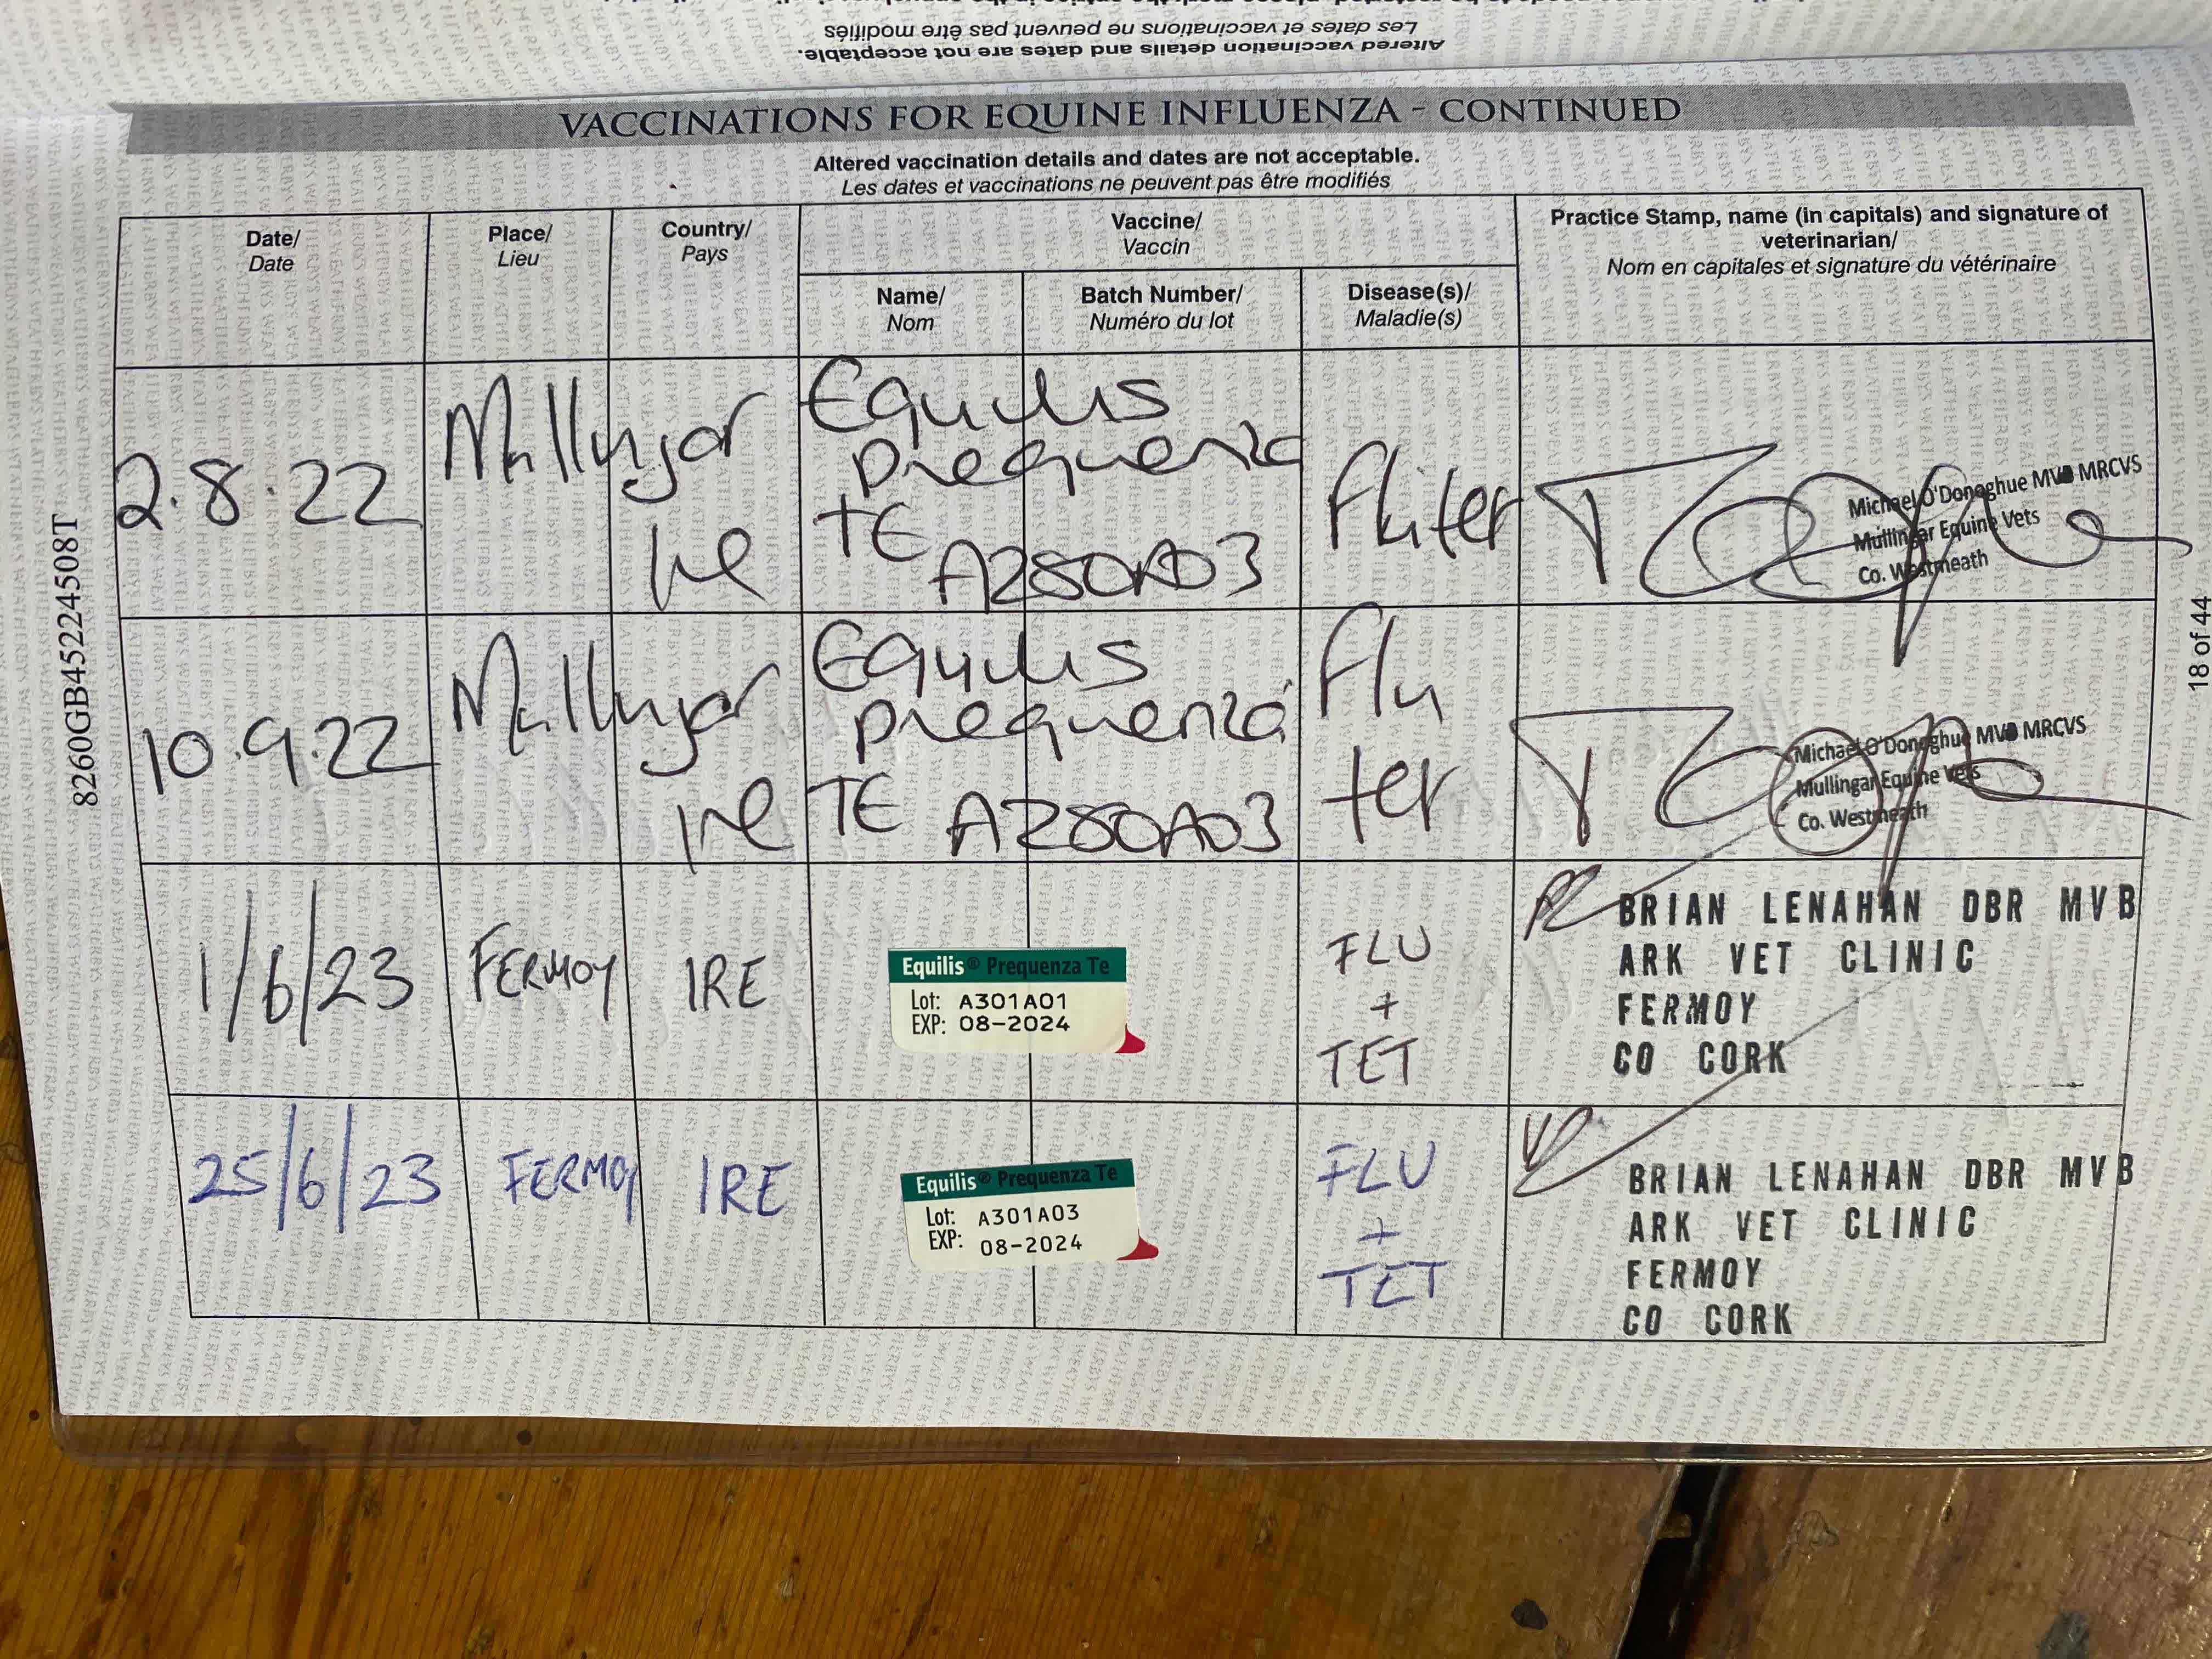 Les dates et vaccinations ne peuvent pas être modifiés
Altered vaccination details and dates are not acceptable.
VACCINATIONS FOR EQUINE INFLUENZA - CONTINUED
Altered vaccination details and dates are not acceptable.
Les dates et vaccinations ne peuvent pas être modifiés
Date/
Date
Place/
Lieu
Country/
Pays
Vaccine/
Vaccin
Name/
Nom
Batch Number/
Numéro du lot
Disease(s)/
Maladie(s)
Practice Stamp, name (in capitals) and signature of
veterinarian/
Nom en capitales et signature du vétérinaire
2.8.22
Mullingar
Ire
Equilis
prequenza
TE
A280A03
Fluter
Michael O'Donoghue MVB MRCVS
Mullingar Equine Vets
Co. Westmeath
10.9.22
Mullingar
Ire
Equilis
prequenza
TE
A280A03
Flu
ter
Michael O'Donoghue MVB MRCVS
Mullingar Equine Vets
Co. Westmeath
1/6/23
FERMOY
IRE
Equilis® Prequenza Te
Lot: A301A01
EXP: 08-2024
FLU
+
TET
BRIAN LENAHAN DBR MVB
ARK VET CLINIC
FERMOY
CO CORK
25/6/23
FERMOY
IRE
Equilis® Prequenza Te
Lot: A301A03
EXP: 08-2024
FLU
+
TET
BRIAN LENAHAN DBR MVB
ARK VET CLINIC
FERMOY
CO CORK
8260GB45224508T
18 of 44